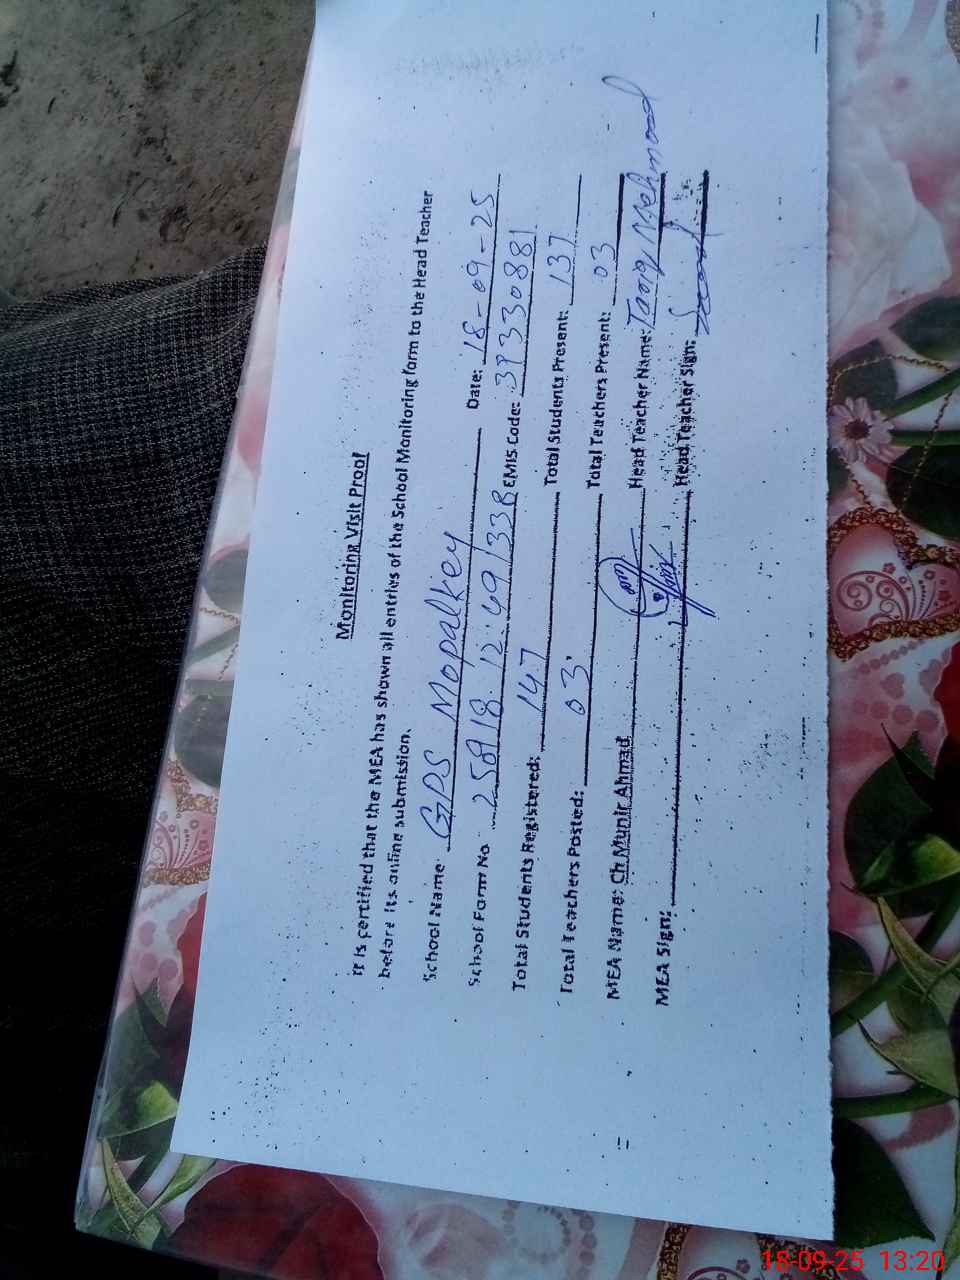 Monitoring Visit Proof
It is certified that the MEA has shown all entries of the School Monitoring form to the Head Teacher
before its online submission.
School Name: GPS Mopalkey Date: 18-09-25
School Form No. EMIS Code:
Total Students Registered: 147 Total Students Present: 137
Total Teachers Posted: 03 Total Teachers Present: 03
MEA Name: Ch Munir Ahmad Head Teacher Name: Tariq Mehmood
MEA Sign: Head Teacher Sign:
18-09-25 13:20